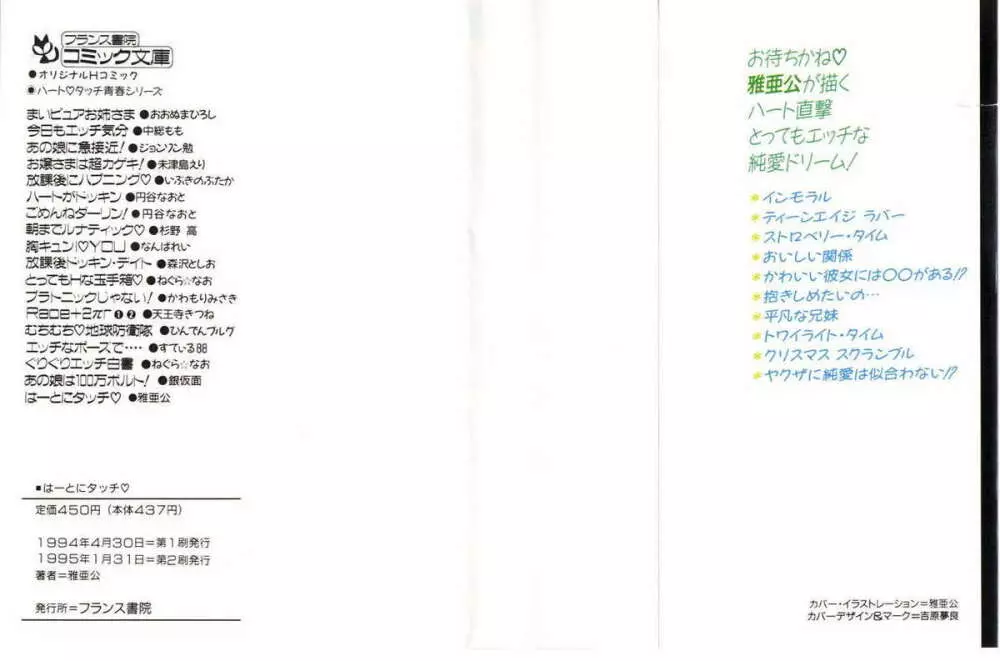 フランス書院
コミック文庫
●オリジナルHコミック
●ハート♡タッチ青春シリーズ
まいピュアお姉さま●おおぬまひろし
今日もエッチ気分●中総もも
あの娘に急接近!●ジョンソン勉
お嬢さまは超カゲキ!●未津島えり
放課後にハプニング♡●いぶきのぶたか
ハートがドッキン●円谷なおと
ごめんねダーリン!●円谷なおと
朝までルナティック♡●杉野 高
胸キュン!♡YOU●なんばれい
放課後ドッキン・デイト●森沢としお
とってもHな玉手箱♡●ねぐら☆なお
プラトニックじゃない!●かわもりみさき
Rape+2πr❶❷●天王寺きつね
むちむち♡地球防衛隊●ひんでんブルグ
エッチなポーズで‥‥●すてぃる88
ぐりぐりエッチ白書●ねぐら☆なお
あの娘は100万ボルト!●銀仮面
はーとにタッチ♡●雅亜公
■はーとにタッチ♡
定価450円(本体437円)
1994年4月30日=第1刷発行
1995年1月31日=第2刷発行
著者=雅亜公
発行所=フランス書院
お待ちかね♡
雅亜公が描く
ハート直撃
とってもエッチな
純愛ドリーム!
*インモラル
*ティーンエイジ ラバー
*ストロベリー・タイム
*おいしい関係
*かわいい彼女には○○がある!?
*抱きしめたいの…
*平凡な兄妹
*トワイライト・タイム
*クリスマス スクランブル
*ヤクザに純愛は似合わない!?
カバー・イラストレーション=雅亜公
カバーデザイン&マーク=吉原夢良